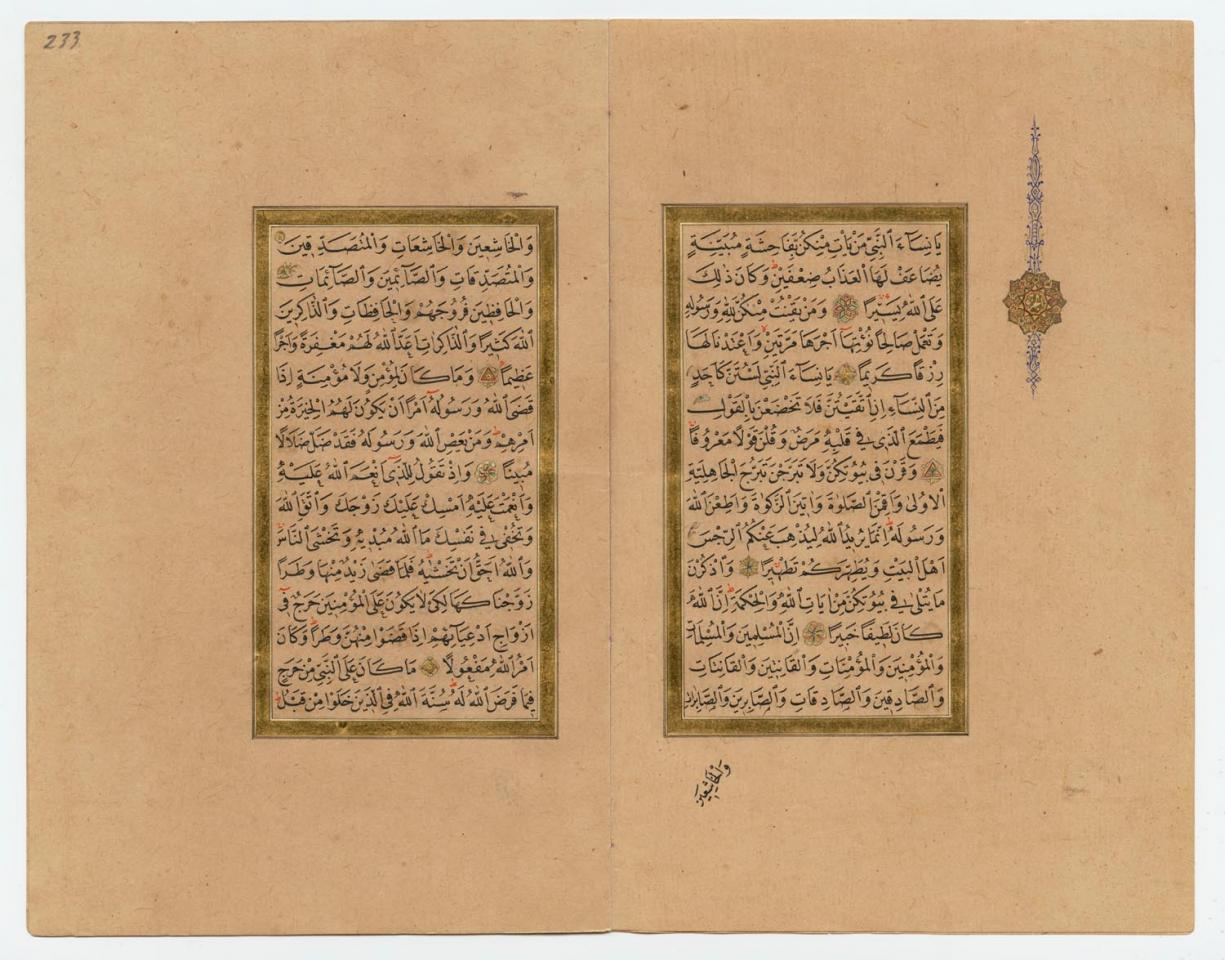 يَا نِسَاءَ النَّبِيِّ مَنْ يَأْتِ مِنْكُنَّ بِفَاحِشَةٍ مُبَيِّنَةٍ
يُضَاعَفْ لَهَا الْعَذَابُ ضِعْفَيْنِ وَكَانَ ذٰلِكَ
عَلَى اللّٰهِ يَسِيرًا وَمَنْ يَقْنُتْ مِنْكُنَّ لِلّٰهِ وَرَسُولِهِ
وَتَعْمَلْ صَالِحًا نُؤْتِهَا أَجْرَهَا مَرَّتَيْنِ وَأَعْتَدْنَا لَهَا
رِزْقًا كَرِيمًا يَا نِسَاءَ النَّبِيِّ لَسْتُنَّ كَأَحَدٍ
مِنَ النِّسَاءِ إِنِ اتَّقَيْتُنَّ فَلَا تَخْضَعْنَ بِالْقَوْلِ
فَيَطْمَعَ الَّذِي فِي قَلْبِهِ مَرَضٌ وَقُلْنَ قَوْلًا مَعْرُوفًا
وَقَرْنَ فِي بُيُوتِكُنَّ وَلَا تَبَرَّجْنَ تَبَرُّجَ الْجَاهِلِيَّةِ
الْأُولَى وَأَقِمْنَ الصَّلٰوةَ وَآتِينَ الزَّكٰوةَ وَأَطِعْنَ اللّٰهَ
وَرَسُولَهُ إِنَّمَا يُرِيدُ اللّٰهُ لِيُذْهِبَ عَنْكُمُ الرِّجْسَ
أَهْلَ الْبَيْتِ وَيُطَهِّرَكُمْ تَطْهِيرًا وَاذْكُرْنَ
مَا يُتْلَى فِي بُيُوتِكُنَّ مِنْ آيَاتِ اللّٰهِ وَالْحِكْمَةِ إِنَّ اللّٰهَ
كَانَ لَطِيفًا خَبِيرًا إِنَّ الْمُسْلِمِينَ وَالْمُسْلِمَاتِ
وَالْمُؤْمِنِينَ وَالْمُؤْمِنَاتِ وَالْقَانِتِينَ وَالْقَانِتَاتِ
وَالصَّادِقِينَ وَالصَّادِقَاتِ وَالصَّابِرِينَ وَالصَّابِرَاتِ
وَالْخَاشِعِينَ
233
وَالْخَاشِعِينَ وَالْخَاشِعَاتِ وَالْمُتَصَدِّقِينَ
وَالْمُتَصَدِّقَاتِ وَالصَّائِمِينَ وَالصَّائِمَاتِ
وَالْحَافِظِينَ فُرُوجَهُمْ وَالْحَافِظَاتِ وَالذَّاكِرِينَ
اللّٰهَ كَثِيرًا وَالذَّاكِرَاتِ أَعَدَّ اللّٰهُ لَهُمْ مَغْفِرَةً وَأَجْرًا
عَظِيمًا وَمَا كَانَ لِمُؤْمِنٍ وَلَا مُؤْمِنَةٍ إِذَا
قَضَى اللّٰهُ وَرَسُولُهُ أَمْرًا أَنْ يَكُونَ لَهُمُ الْخِيَرَةُ مِنْ
أَمْرِهِمْ وَمَنْ يَعْصِ اللّٰهَ وَرَسُولَهُ فَقَدْ ضَلَّ ضَلَالًا
مُبِينًا وَإِذْ تَقُولُ لِلَّذِي أَنْعَمَ اللّٰهُ عَلَيْهِ
وَأَنْعَمْتَ عَلَيْهِ أَمْسِكْ عَلَيْكَ زَوْجَكَ وَاتَّقِ اللّٰهَ
وَتُخْفِي فِي نَفْسِكَ مَا اللّٰهُ مُبْدِيهِ وَتَخْشَى النَّاسَ
وَاللّٰهُ أَحَقُّ أَنْ تَخْشٰيهُ فَلَمَّا قَضَى زَيْدٌ مِنْهَا وَطَرًا
زَوَّجْنَاكَهَا لِكَيْ لَا يَكُونَ عَلَى الْمُؤْمِنِينَ حَرَجٌ فِي
أَزْوَاجِ أَدْعِيَائِهِمْ إِذَا قَضَوْا مِنْهُنَّ وَطَرًا وَكَانَ
أَمْرُ اللّٰهِ مَفْعُولًا مَا كَانَ عَلَى النَّبِيِّ مِنْ حَرَجٍ
فِيمَا فَرَضَ اللّٰهُ لَهُ سُنَّةَ اللّٰهِ فِي الَّذِينَ خَلَوْا مِنْ قَبْلُ